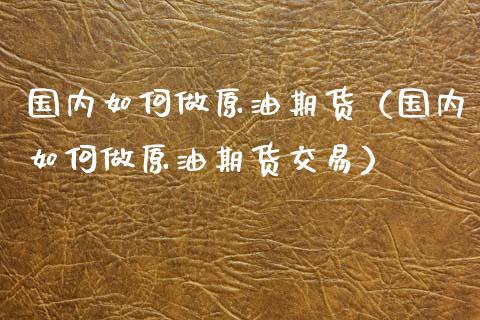 国内如何做原油期货（国内
如何做原油期货交易）